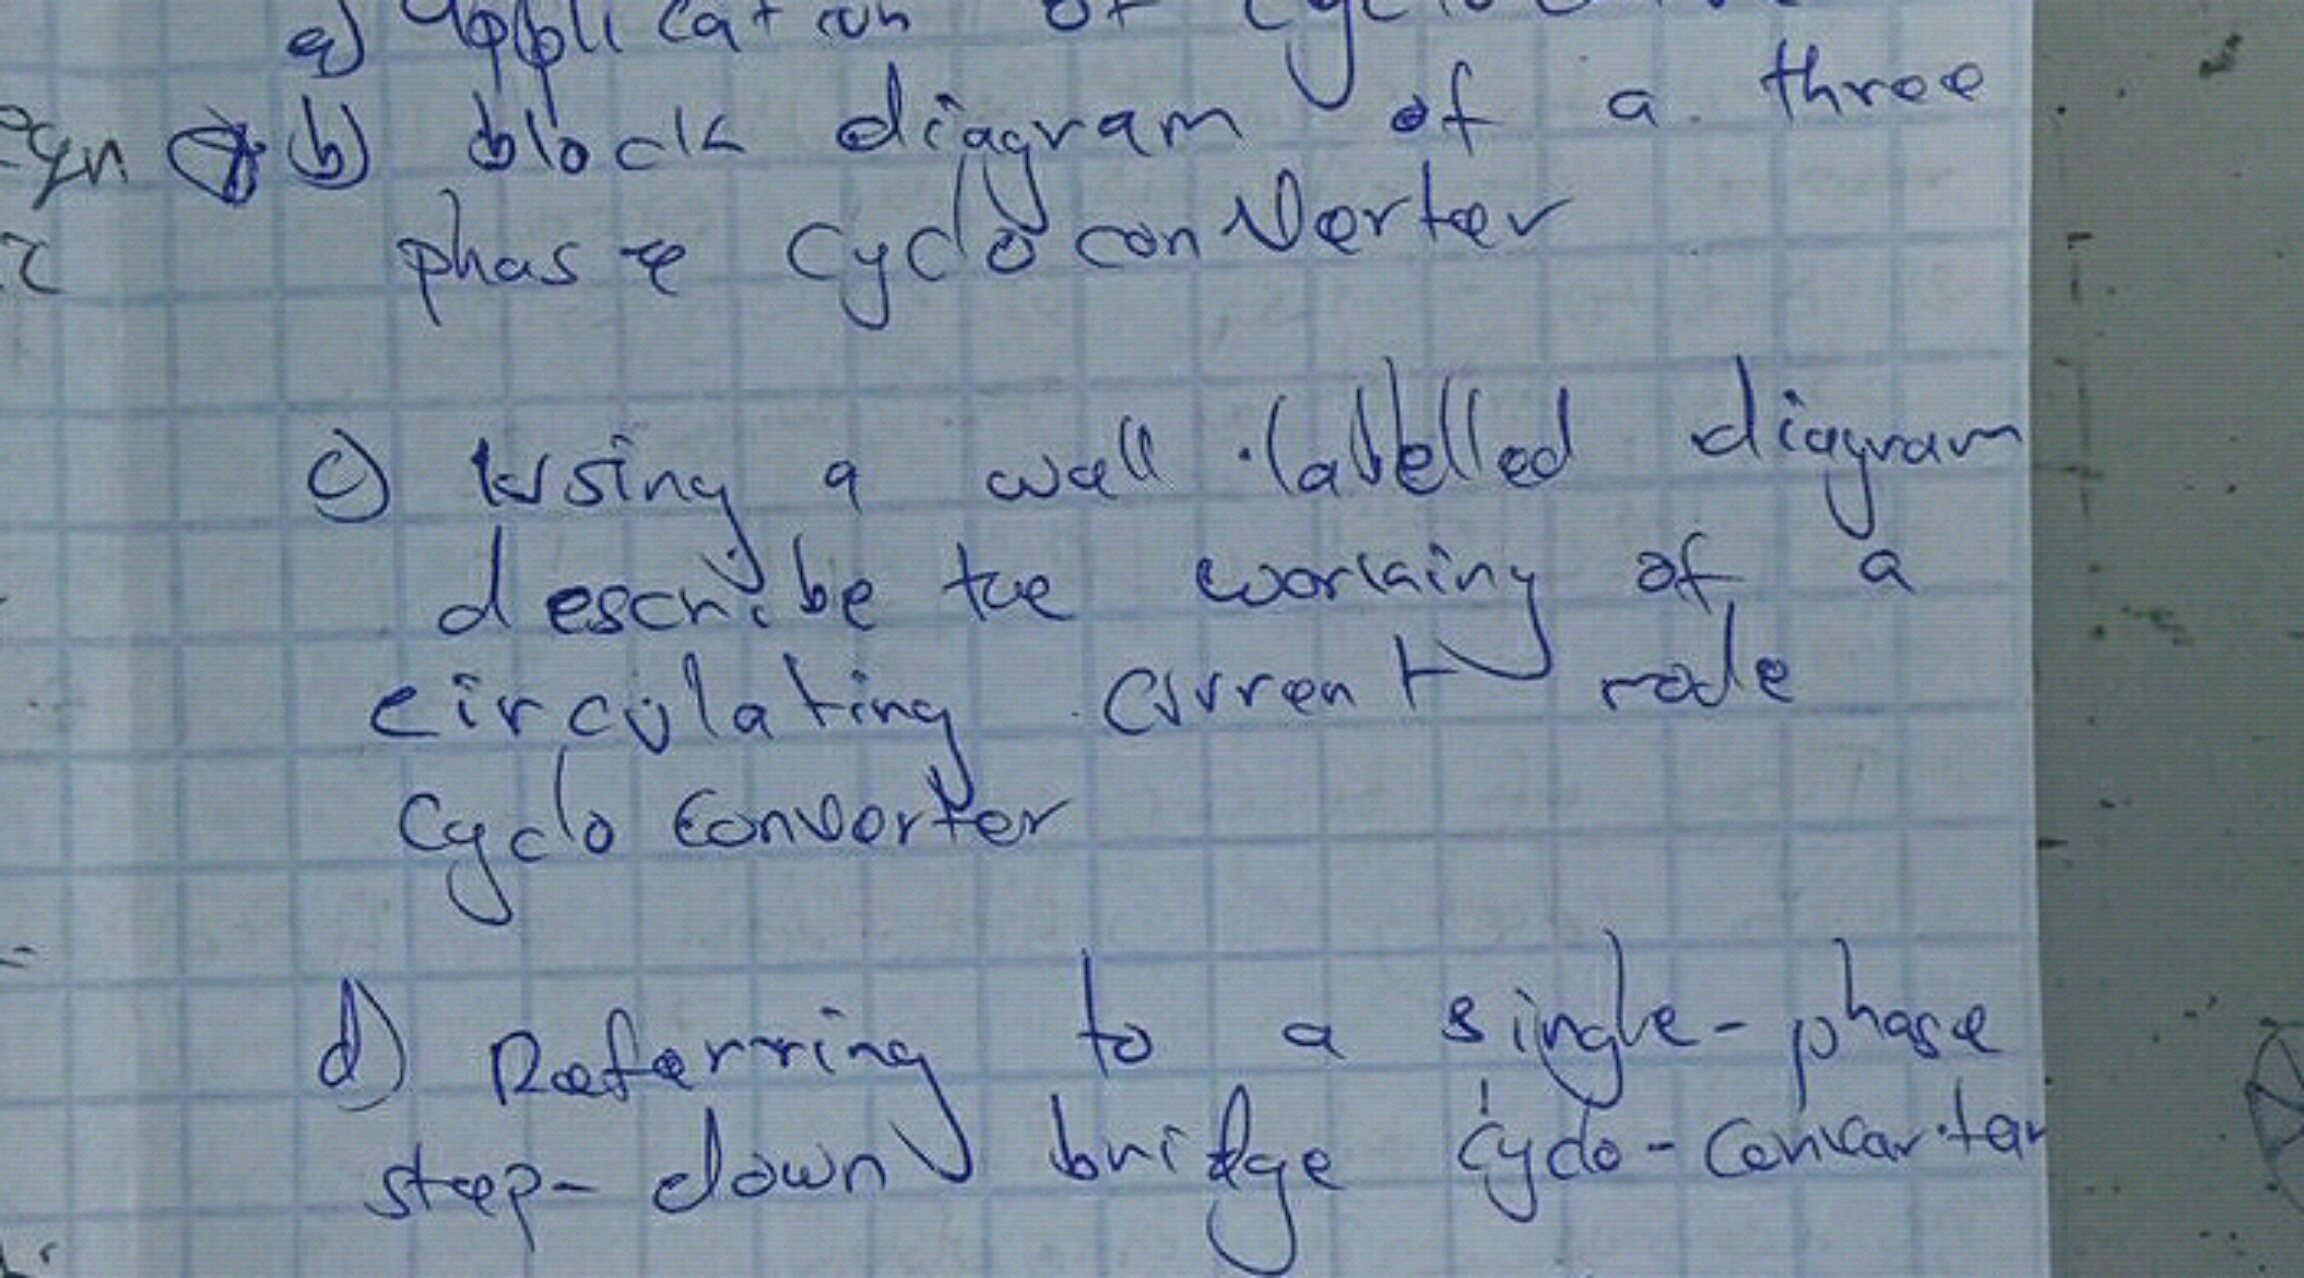 a) application of
b) block diagram of a three
phase cycloconverter
c) Using a well labelled diagram
describe the working of a
circulating current mode
cyclo converter
d) Referring to a single-phase
step-down bridge cyclo-converter